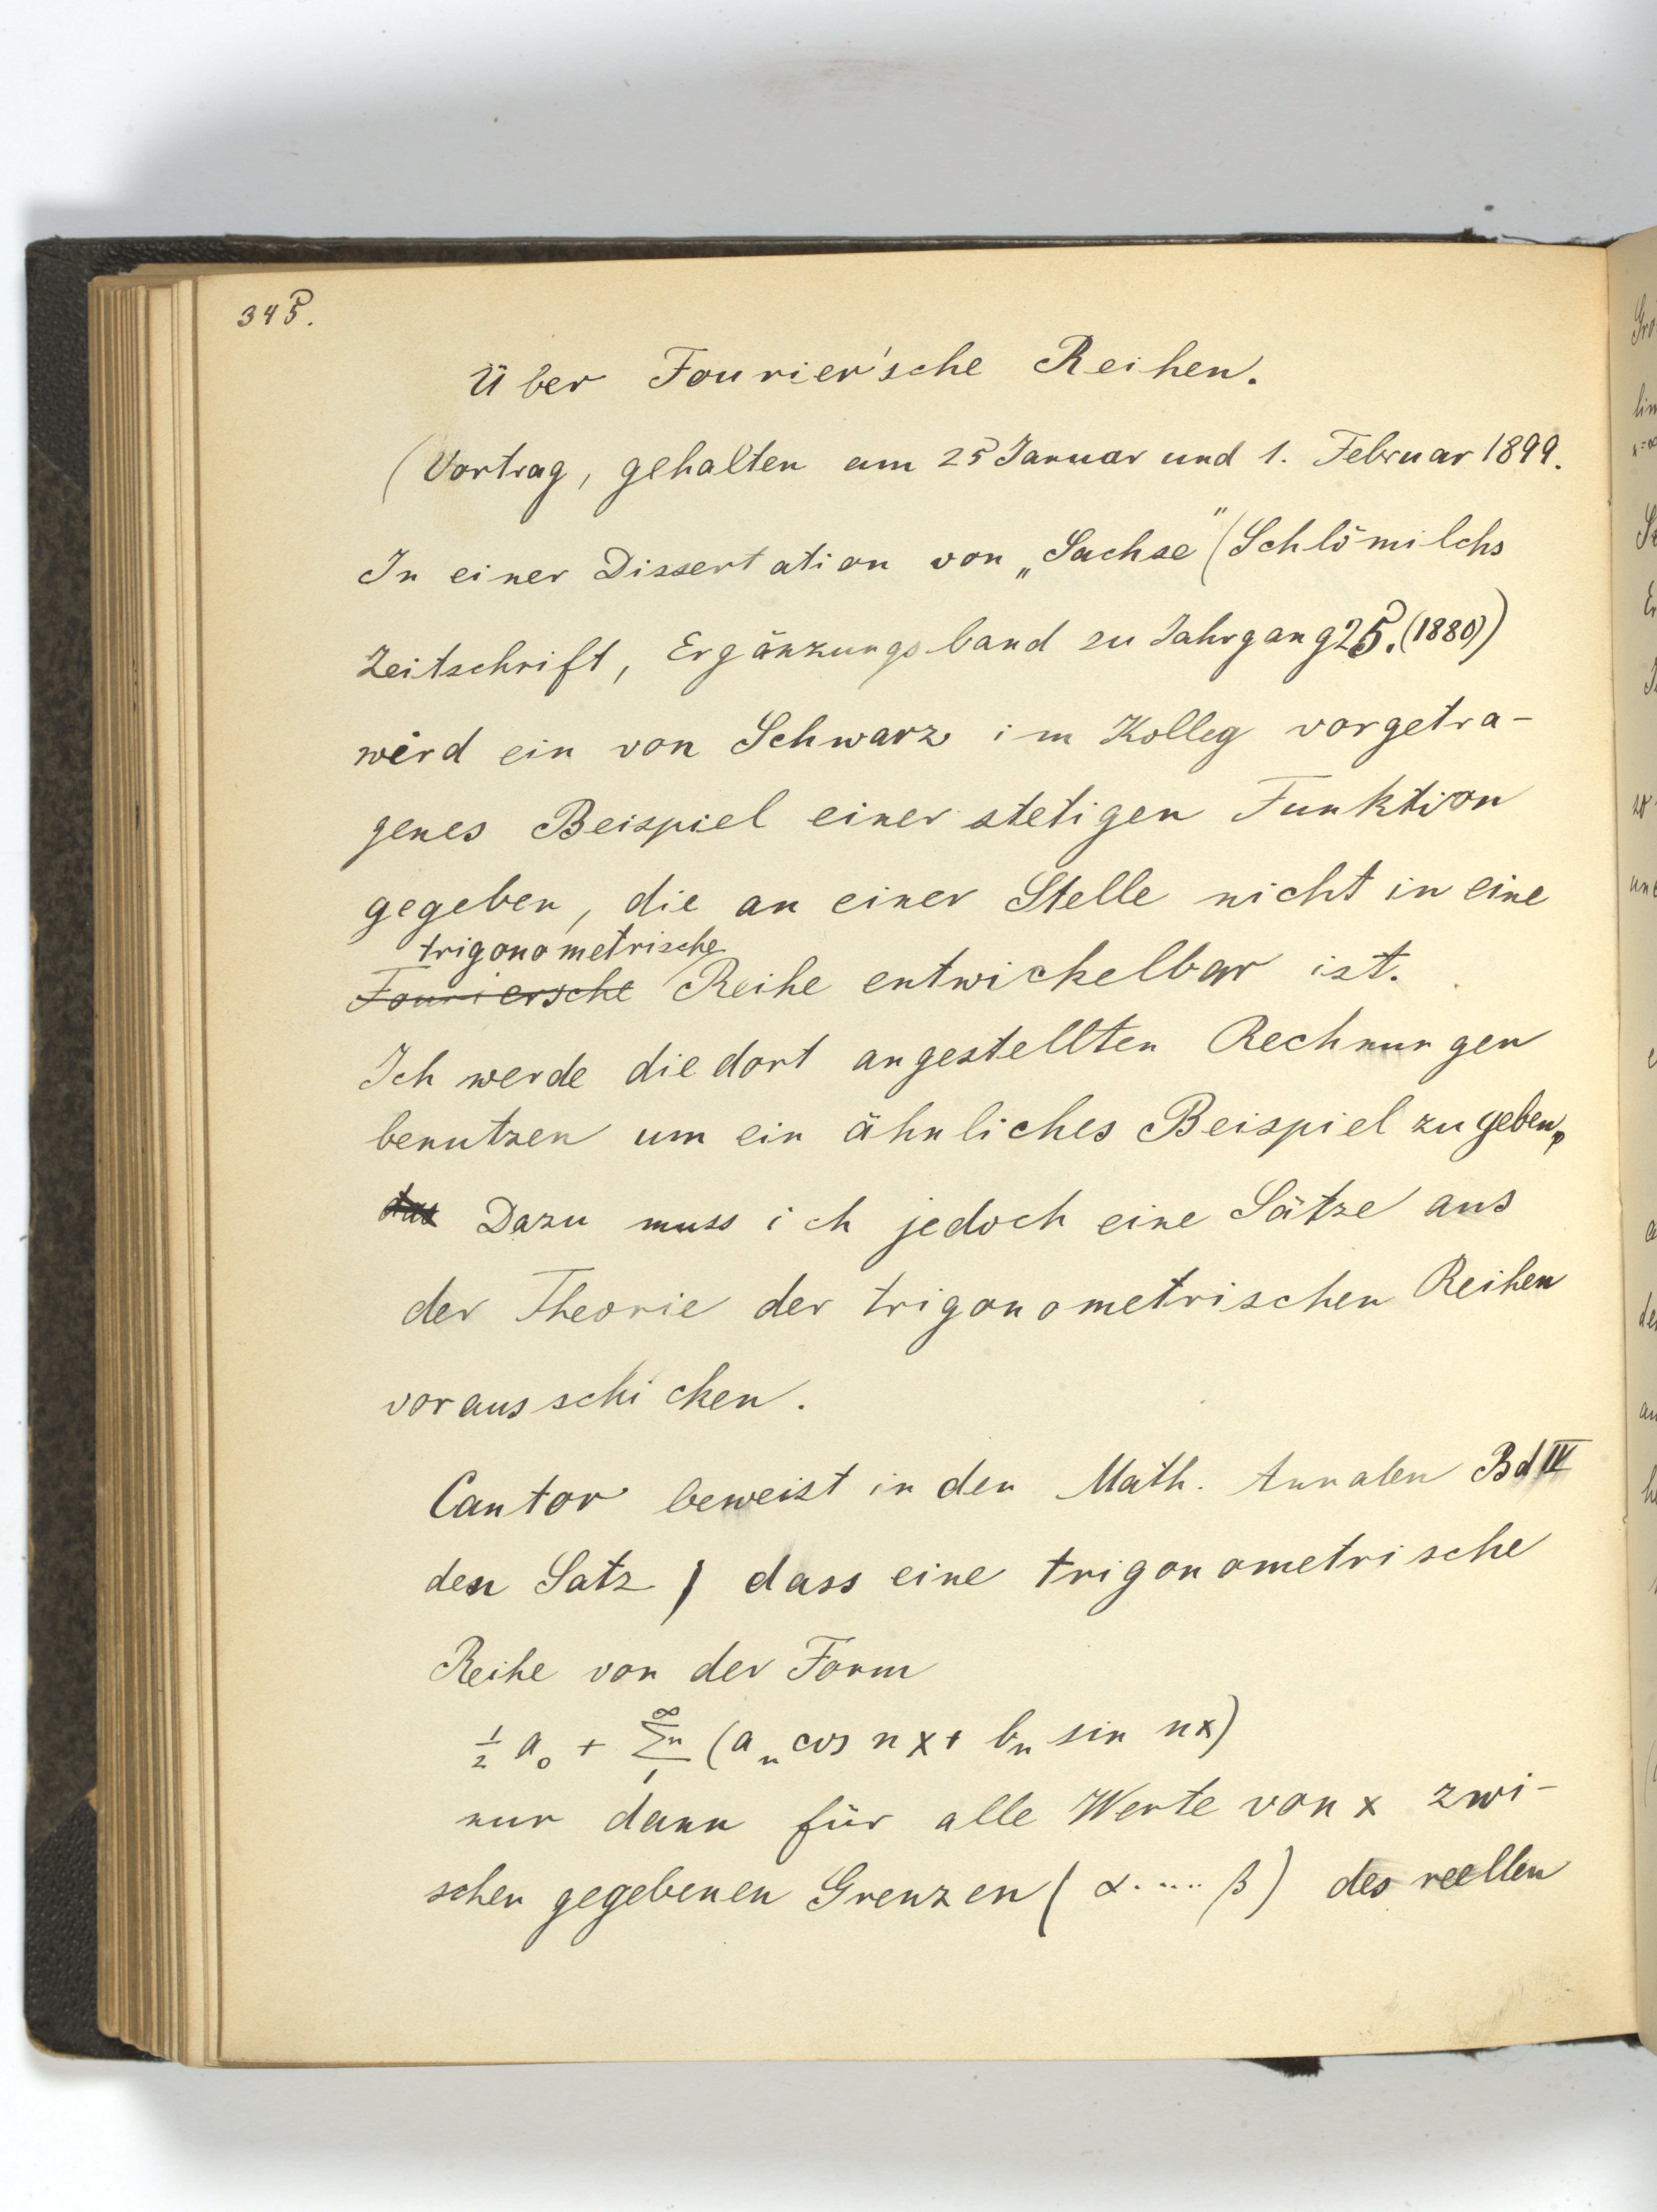 345.
Über Fourier'sche Reihen.
(Vortrag, gehalten am 25 Januar und 1. Februar 1899.
In einer Dissertation von „Sachse" (Schlömilchs
Zeitschrift, Ergänzungsband zu Jahrgang 25. (1880))
wird ein von Schwarz im Kolleg vorgetra-
genes Beispiel einer stetigen Funktion
gegeben, die an einer Stelle nicht in eine
trigonometrische
Fouriersche Reihe entwickelbar ist.
Ich werde die dort angestellten Rechnungen
benutzen um ein ähnliches Beispiel zu geben,
Dazu muss ich jedoch eine Sätze aus
der Theorie der trigonometrischen Reihen
vorausschicken.
Cantor beweist in den Math. Annalen Bd IV
den Satz, dass eine trigonometrische
Reihe von der Form
½ a₀ + ∑ₙ₌₁^∞ (aₙ cos nx + bₙ sin nx)
nur dann für alle Werte von x zwi-
schen gegebenen Grenzen (α..... β) des reellen